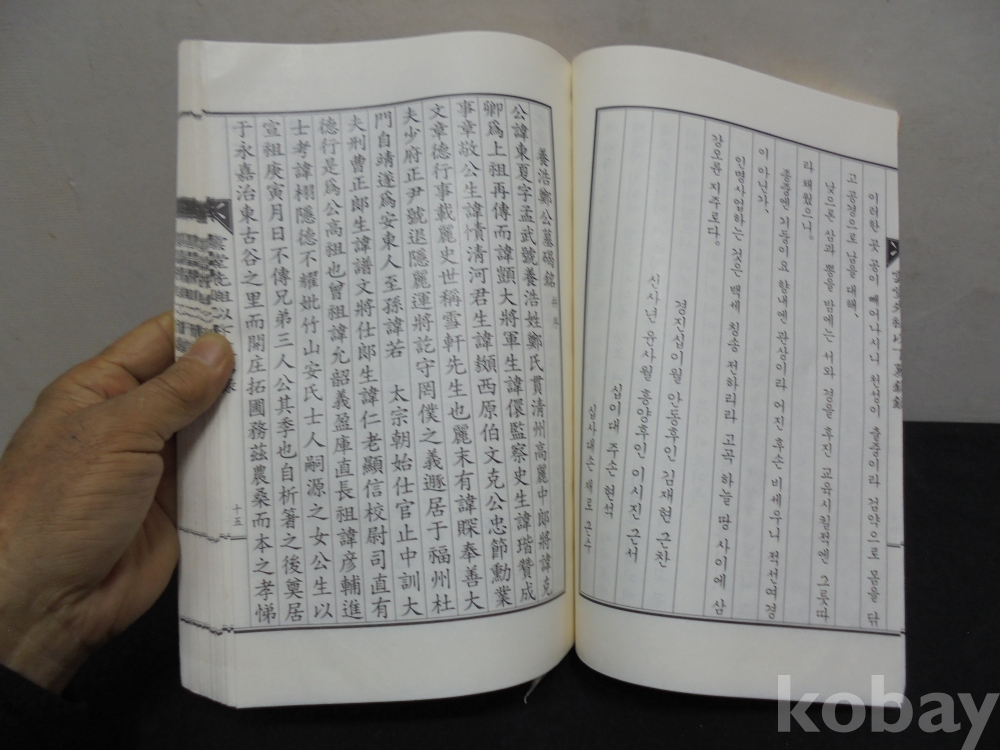 이러한 곳 공이 빼어나시니 천성이 출중이라 검약으로 몸을 닦
고 공경으로 남을 대해,
낮으론 삼과 뽕을 밤에는 서와 경을 후진 교육시킬적엔 그릇따
라 채웠으니.
종중엔 기둥이요 향내엔 관상이라 어진 후손 비세우니 적선의경
이 아닌가,
인멸사업하는 것은 백세 칭송 전하리라 고곡 하늘 땅 사이에 삼
강오륜 지주로다.
경진십이월 안동후인 김재현 근찬
신사년 윤사월 흥양후인 이시진 근서
십이대 주손 현석
십사대손 재로 근수
養浩鄭公墓碣銘 幷序
公諱東夏字孟武號養浩姓鄭氏貫清州高麗中郞將諱克
卿爲上祖再傳而諱顗大將軍生諱儇監察史生諱瑎贊成
事章敬公生諱㥽清河君生諱䫨西原伯文克公忠節勳業
文章德行事載麗史世稱雪軒先生也麗末有諱賝奉善大
夫少府正尹號退隱麗運將訖守罔僕之義遯居于福州杜
門自靖遂爲安東人至孫諱若 太宗朝始仕官止中訓大
夫刑曹正郞生諱譜文將仕郞生諱仁老顯信校尉司直有
德行是爲公高祖也曾祖諱允韶義盈庫直長祖諱彦輔進
士考諱栩隱德不耀妣竹山安氏士人嗣源之女公生以
宣祖庚寅月日不傳兄弟三人公其季也自析箸之後奠居
于永嘉治東古谷之里而開庄拓圃務玆農桑而本之孝悌
十五
kobay